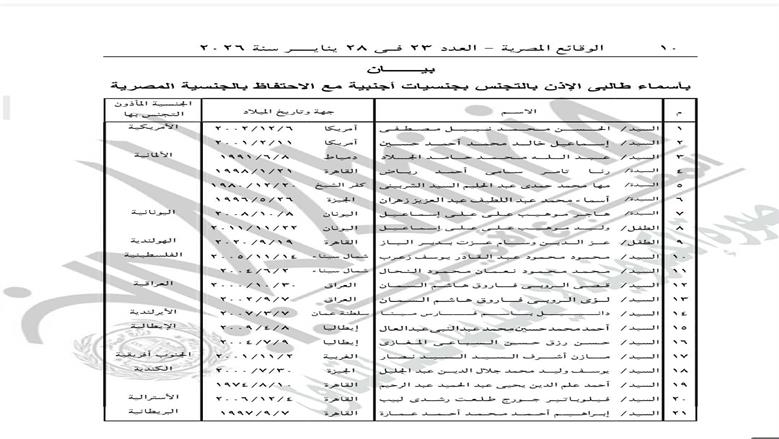 ١٠ الوقائع المصرية – العدد ٢٣ فى ٢٨ يناير سنة ٢٠٢٦
بيـــان
بأسماء طالبى الإذن بالتجنس بجنسيات أجنبية مع الاحتفاظ بالجنسية المصرية
م الاسم جهة وتاريخ الميلاد الجنسية المأذون التجنس بها
١ السيد/ الحسن محمد نبيل مصطفى أمريكا ٢٠٠٢/١٢/٦ الأمريكية
٢ السيد/ إسماعيل خالد محمد أحمد حسين أمريكا ٢٠٠١/٢/١١
٣ السيد/ عبد الله محمد حامد الجلاد دمياط ١٩٩١/٦/٨ الألمانية
٤ السيدة/ رنا تامر سامى أحمد رياض القاهرة ١٩٩٨/١/٢١
٥ السيدة/ مها محمد حمدى عبد الحليم السيد الشربينى كفر الشيخ ١٩٨٠/١٢/٢٠
٦ السيدة/ أسماء محمد عبد اللطيف عبد العزيز زهران الجيزة ١٩٩٦/٥/٢٦
٧ السيدة/ هاجر موهب على على إسماعيل اليونان ٢٠٠٨/١٠/٨ اليونانية
٨ الطفل/ وليد موهب على على إسماعيل اليونان ٢٠١١/١١/٢٢
٩ الطفل/ عز الدين وسام عزت سمير الباز القاهرة ٢٠٢٠/٩/١٩ الهولندية
١٠ السيد/ محمود محمد عبد القادر يوسف زعرب شمال سيناء ٢٠٠٥/١١/١٤ الفلسطينية
١١ السيد/ محمد محمود نعمان محمود النحال شمال سيناء ٢٠٠٤/٦/٢
١٢ السيد/ قصى الرويى فاروق هاشم السمان العراق ٢٠٠٠/١٠/٣٠ العراقية
١٣ السيد/ لؤى الرويى فاروق هاشم السمان العراق ٢٠٠٢/٩/٧
١٤ السيد/ دانيال باسم فارس مينا سلطنة عمان ٢٠٠٧/٣/٧ الأيرلندية
١٥ السيد/ أحمد محمد حسين محمد عبد النبى عبد العال إيطاليا ٢٠٠٩/٤/٨ الإيطالية
١٦ السيد/ حسن رزق حسين السباعى المغازى إيطاليا ٢٠٠٤/٧/٩
١٧ السيد/ مازن أشرف السيد السيد نعمار الغربية ٢٠٠١/١١/٢ الجنوب أفريقية
١٨ السيد/ يوسف وليد محمد جلال الدين عبد الجليل الجيزة ٢٠٠٠/٧/٣٠ الكندية
١٩ السيد/ أحمد علم الدين يحيى عبد الحميد عبد الرحيم القاهرة ١٩٧٤/٨/١٠
٢٠ السيد/ فيلوباتير جورج طلعت رشدى لبيب القاهرة ٢٠٠٦/١٢/٤ الأسترالية
٢١ السيد/ إبراهيم أحمد محمد أحمد عمارة القاهرة ١٩٩٧/٩/٧ البريطانية